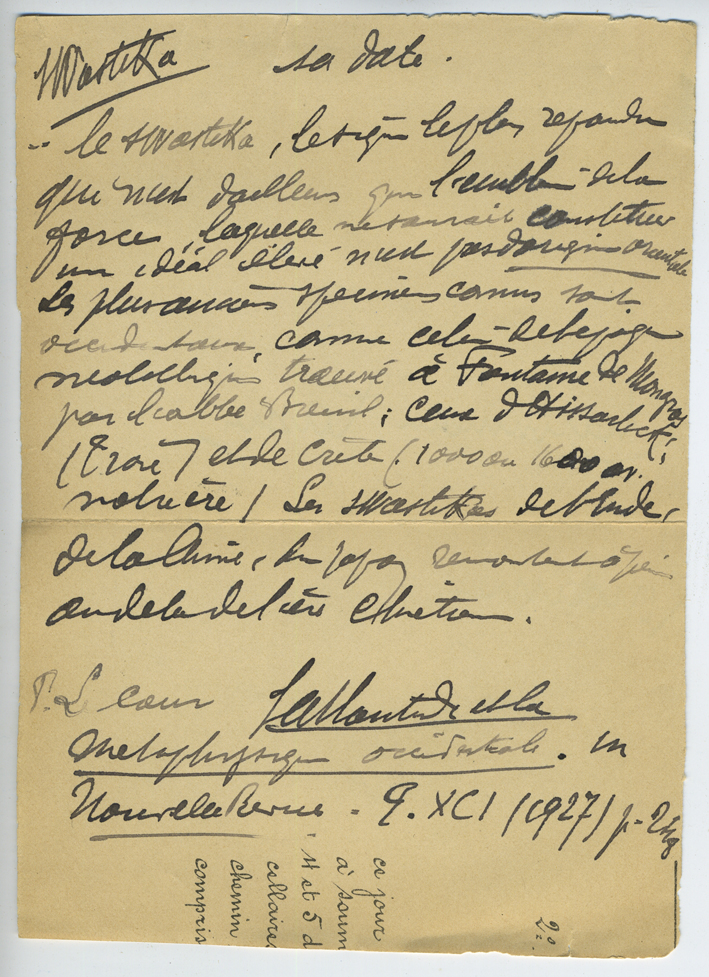 Swastika sa date.
" le swastika, le signe le plus répandu
qui n'est d'ailleurs que l'emblème de la
force, laquelle ne saurait constituer
un idéal élevé n'est pas d'origine orientale
Les plus anciens specimens connus sont
occidentaux, comme celui de l'époque
neolithique trouvé à Fontaine de
par l'abbé Breuil; ceux d'Hissarlick,
(Troie) et de Crète (1000 ou 1600 av.
notre ère) Les swastikas de l'Inde,
de la Chine, du Japon remontent à peine
au delà de l'ère Chrétienne.
P. Le cour L'Atlantide et la
métaphysique occidentale. in
Nouvelle Revue - T. XCI (1927) p.
ce jour
à soum
st et 5 d
cellaire
chemin
compris
2º